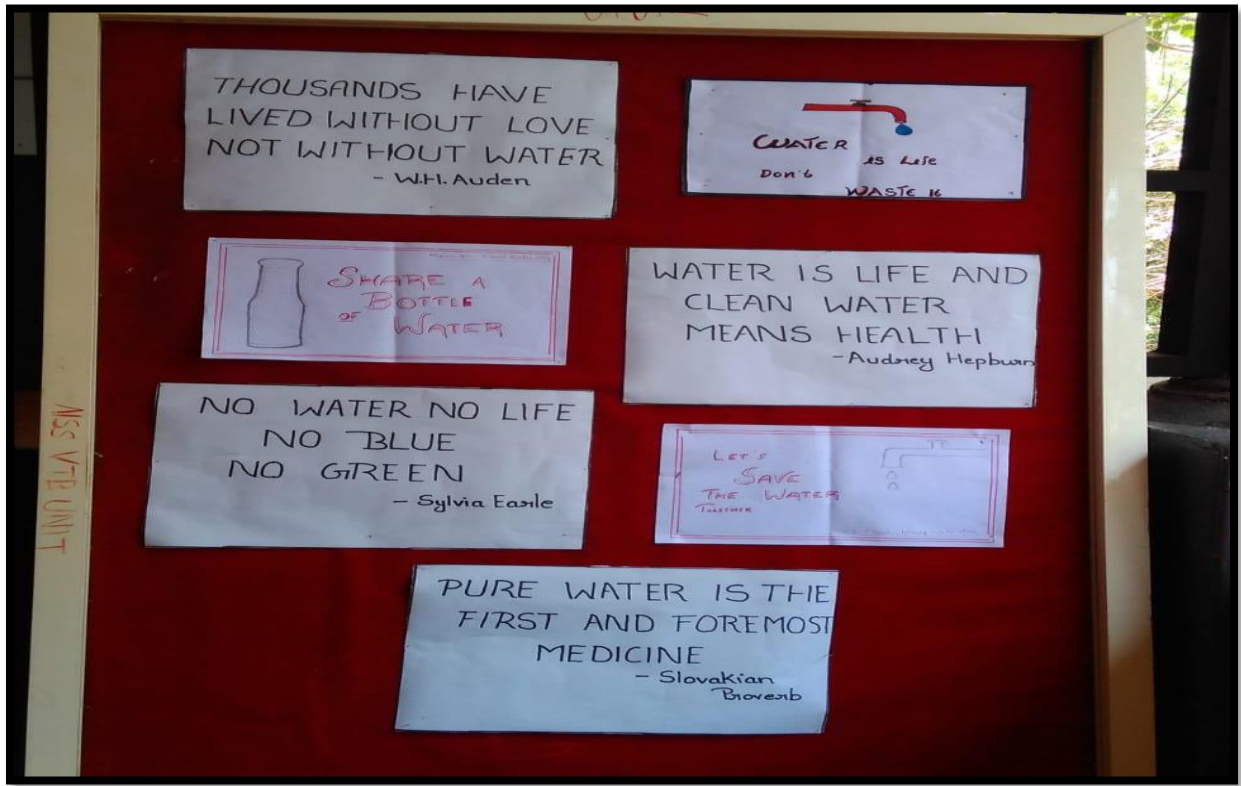 THOUSANDS HAVE
LIVED WITHOUT LOVE
NOT WITHOUT WATER
- W.H. Auden
WATER
is Life
Don't
WASTE it
SHARE A
BOTTLE
OF WATER
WATER IS LIFE AND
CLEAN WATER
MEANS HEALTH
- Audrey Hepburn
NO WATER NO LIFE
NO BLUE
NO GREEN
- Sylvia Earle
LET'S
SAVE
THE WATER
TOGETHER
PURE WATER IS THE
FIRST AND FOREMOST
MEDICINE
- Slovakian
Proverb
NSS VTB UNIT